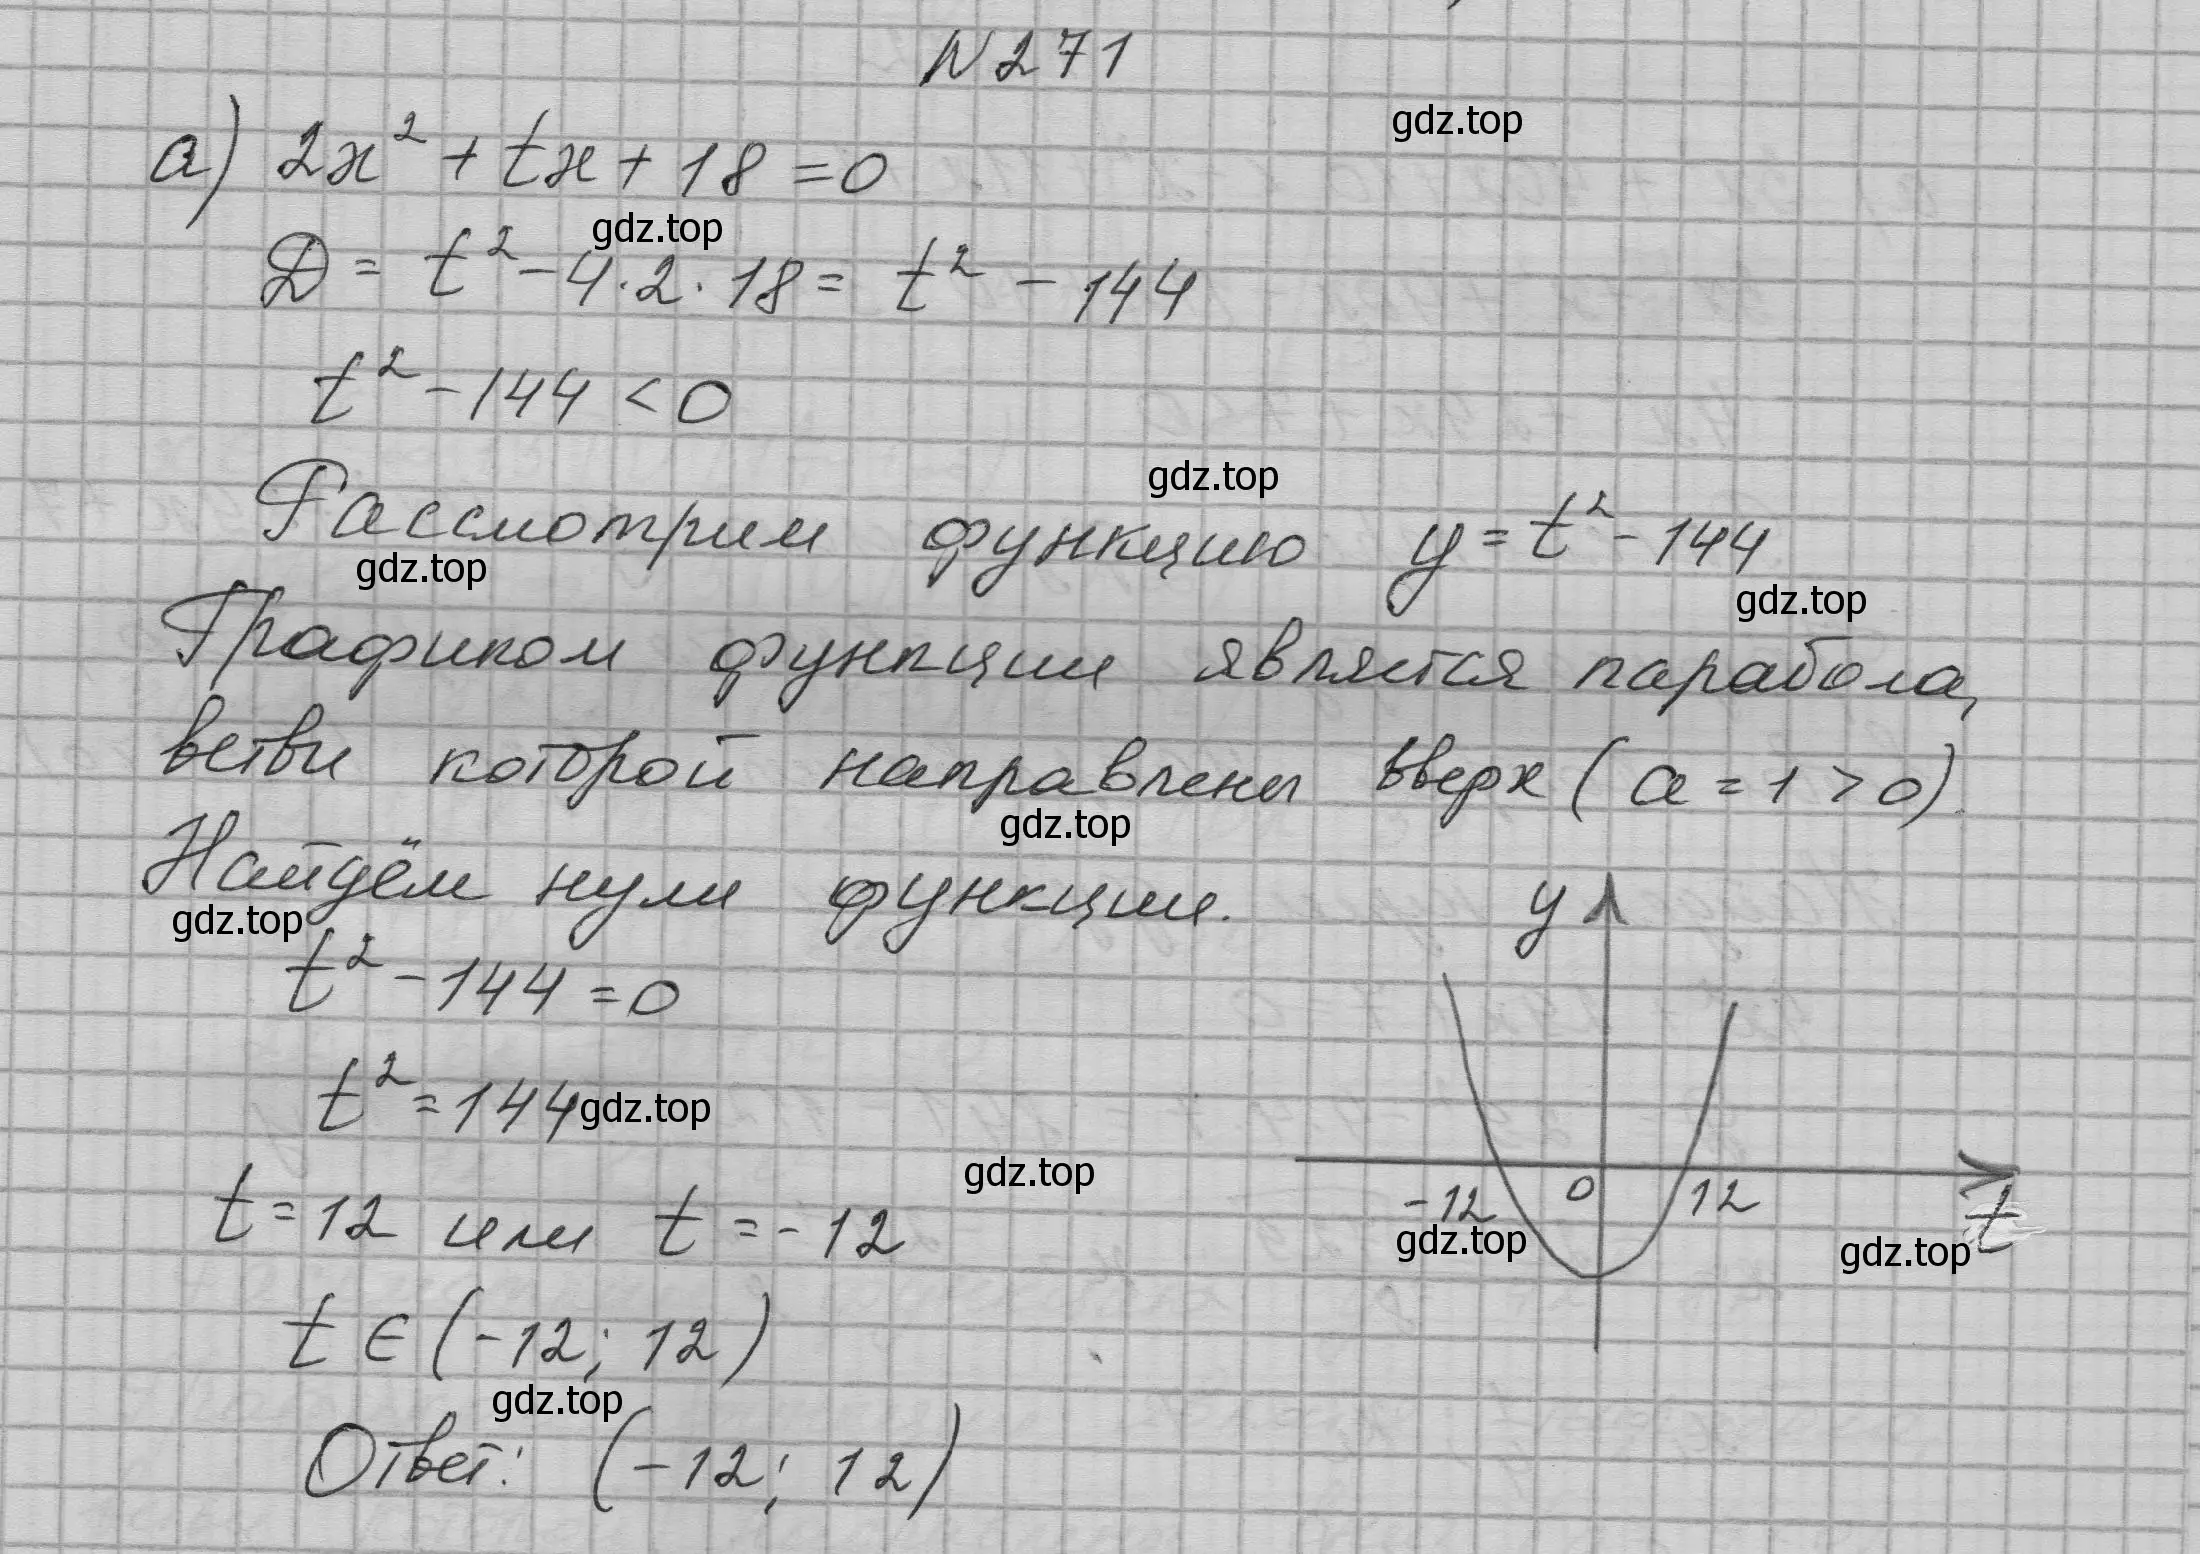 N271
gdz.top
а) 2x² + tx + 18 = 0
gdz.top
Д = t² - 4·2·18 = t² - 144
t² - 144 < 0
gdz.top
Рассмотрим функцию y = t² - 144
gdz.top
gdz.top
Графиком функции является парабола,
ветви которой направлены вверх (a = 1 > 0).
gdz.top
Найдём нули функции.
y
gdz.top
t² - 144 = 0
t² = 144
gdz.top
gdz.top
-12 0 12 t
t = 12 или t = -12
gdz.top
gdz.top
t ∈ (-12; 12)
gdz.top
Ответ: (-12; 12)